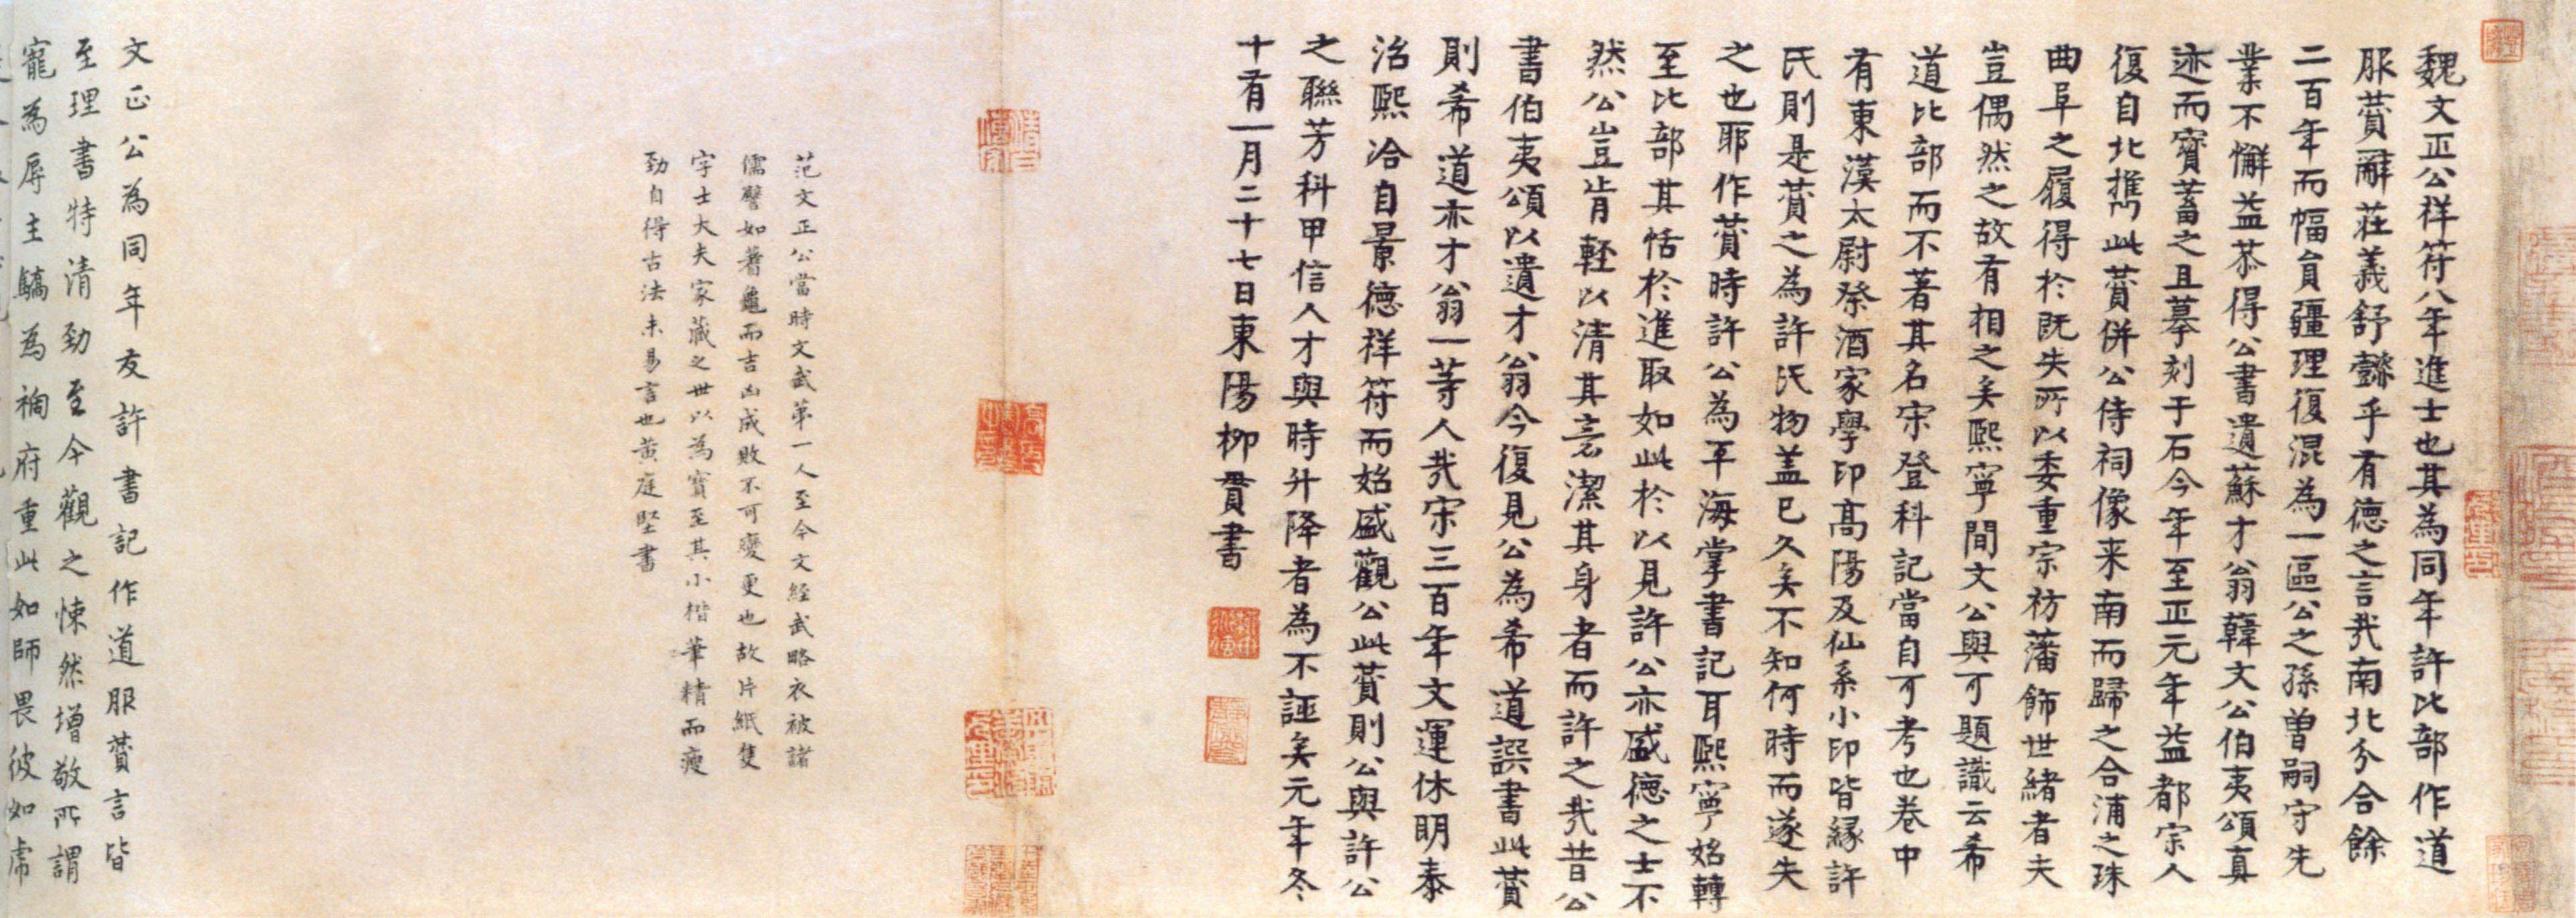 魏文正公祥符八年進士也其為同年許比部作道
服賛辭莊義舒懿乎有德之言哉南北分合餘
二百年而幅員疆理復混為一區公之孫曾嗣守先
業不懈益恭得公書遺蘇才翁韓文公伯夷頌真
迹而寶蓄之且摹刻于石今年至正元年益都宗人
復自北携此賛併公侍祠像来南而歸之合浦之珠
曲阜之履得於既失所以委重宗祊藩飾世緒者夫
豈偶然之故有相之矣熙寧間文公與可題識云希
道比部而不著其名宋登科記當自可考也卷中
有東漢太尉祭酒家學印高陽及仙系小印皆緣許
氏則是賛之為許氏物盖已久矣不知何時而遂失
之也耶作賛時許公為平海掌書記耳熙寧始轉
至比部其恬於進取如此於以見許公亦盛德之士不
然公豈肯輕以清其意潔其身者而許之哉昔公
書伯夷頌以遺才翁今復見公為希道譔書此賛
則希道亦才翁一等人哉宋三百年文運休明泰
治熙洽自景德祥符而始盛觀公此賛則公與許公
之聯芳科甲信人才與時升降者為不誣矣元年冬
十有一月二十七日東陽柳貫書
范文正公當時文武第一人至今文經武略衣被諸
儒譬如蓍龜而吉凶成敗不可變更也故片紙隻
字士大夫家藏之世以為寶至其小楷筆精而瘦
勁自得古法未易言也黃庭堅書
文正公為同年友許書記作道服賛言皆
至理書特清勁至今觀之悚然增敬所謂
寵為辱主驕為禍府重此如師畏彼如虎